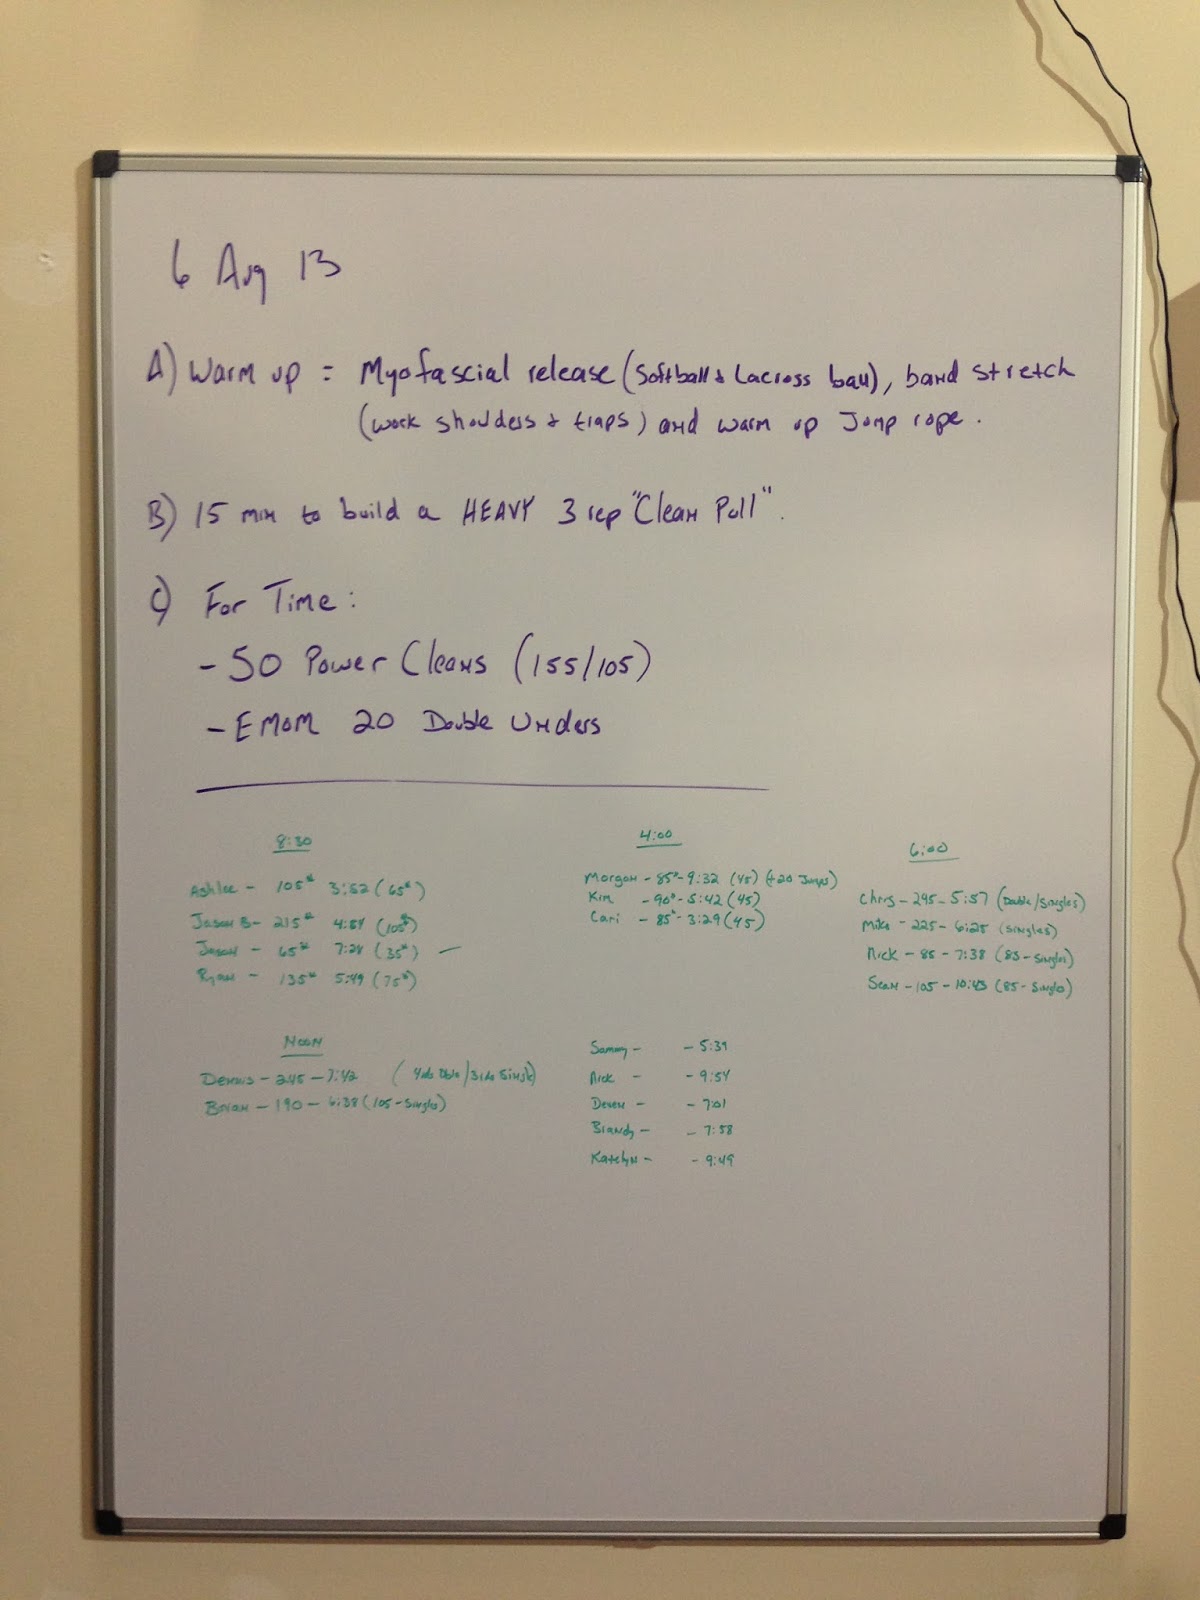 6 Aug 13
A) Warm up = Myofascial release (Softball & Lacross ball), band stretch
(work shoulders & traps) and warm up Jump rope.
B) 15 min to build a HEAVY 3 rep "Clean Pull".
C) For Time:
- 50 Power Cleans (155/105)
- EMOM 20 Double Unders
8:30
Ashlee - 105# 3:52 (65#)
Jason B - 215# (105#)
Jason - 65# (35#) -
Ryan - 135# 5:49 (75#)
Noon
Dennis - 245 - 7:42
Brian - 190 - 6:38 (105 - Singles)
4:00
Morgan - 85# - 9:32 (45) (+20 Jumps)
Kim - 90# - 5:42 (45)
Cari - 85# - 3:29 (45)
Sammy - - 5:39
Nick - - 9:54
Deven - - 7:01
Brandy - - 7:58
Katelyn - - 9:49
6:00
Chris - 295 - 5:57 (Double/Singles)
Mike - 225 - 6:25 (Singles)
Nick - 85 - 7:38 (85 - Singles)
Sean - 105 - 10:43 (85 - Singles)